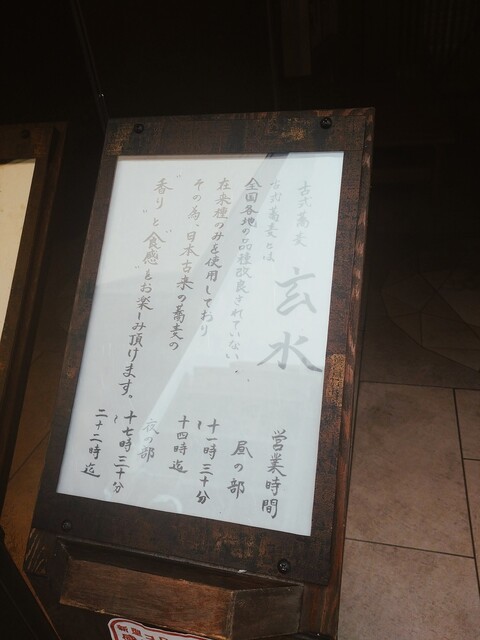 古式蕎麦
玄水
古式蕎麦とは
全国各地の品種改良されていない、
在来種のみを使用しており
その為、日本古来の蕎麦の
”香り”と”食感”をお楽しみ頂けます。
営業時間
昼の部
十一時三十分
〜
十四時迄
夜の部
十七時三十分
〜
二十二時迄